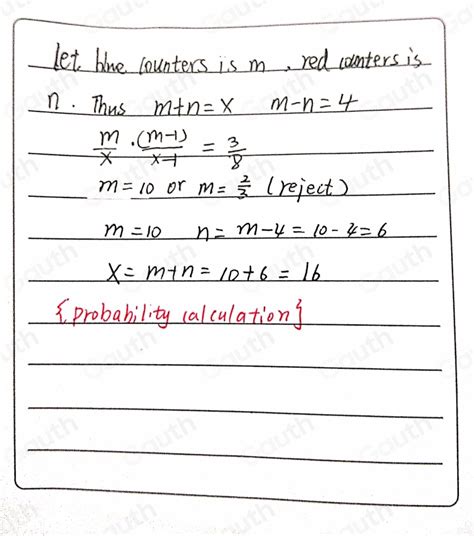 let blue counters is m , red counters is
n . Thus m+n=x m-n=4
m/x · (m-1)/x-1 = 3/8
m=10 or m=2/3 (reject)
m=10 n= m-4=10-4=6
x= m+n= 10+6 = 16
{probability calculation}